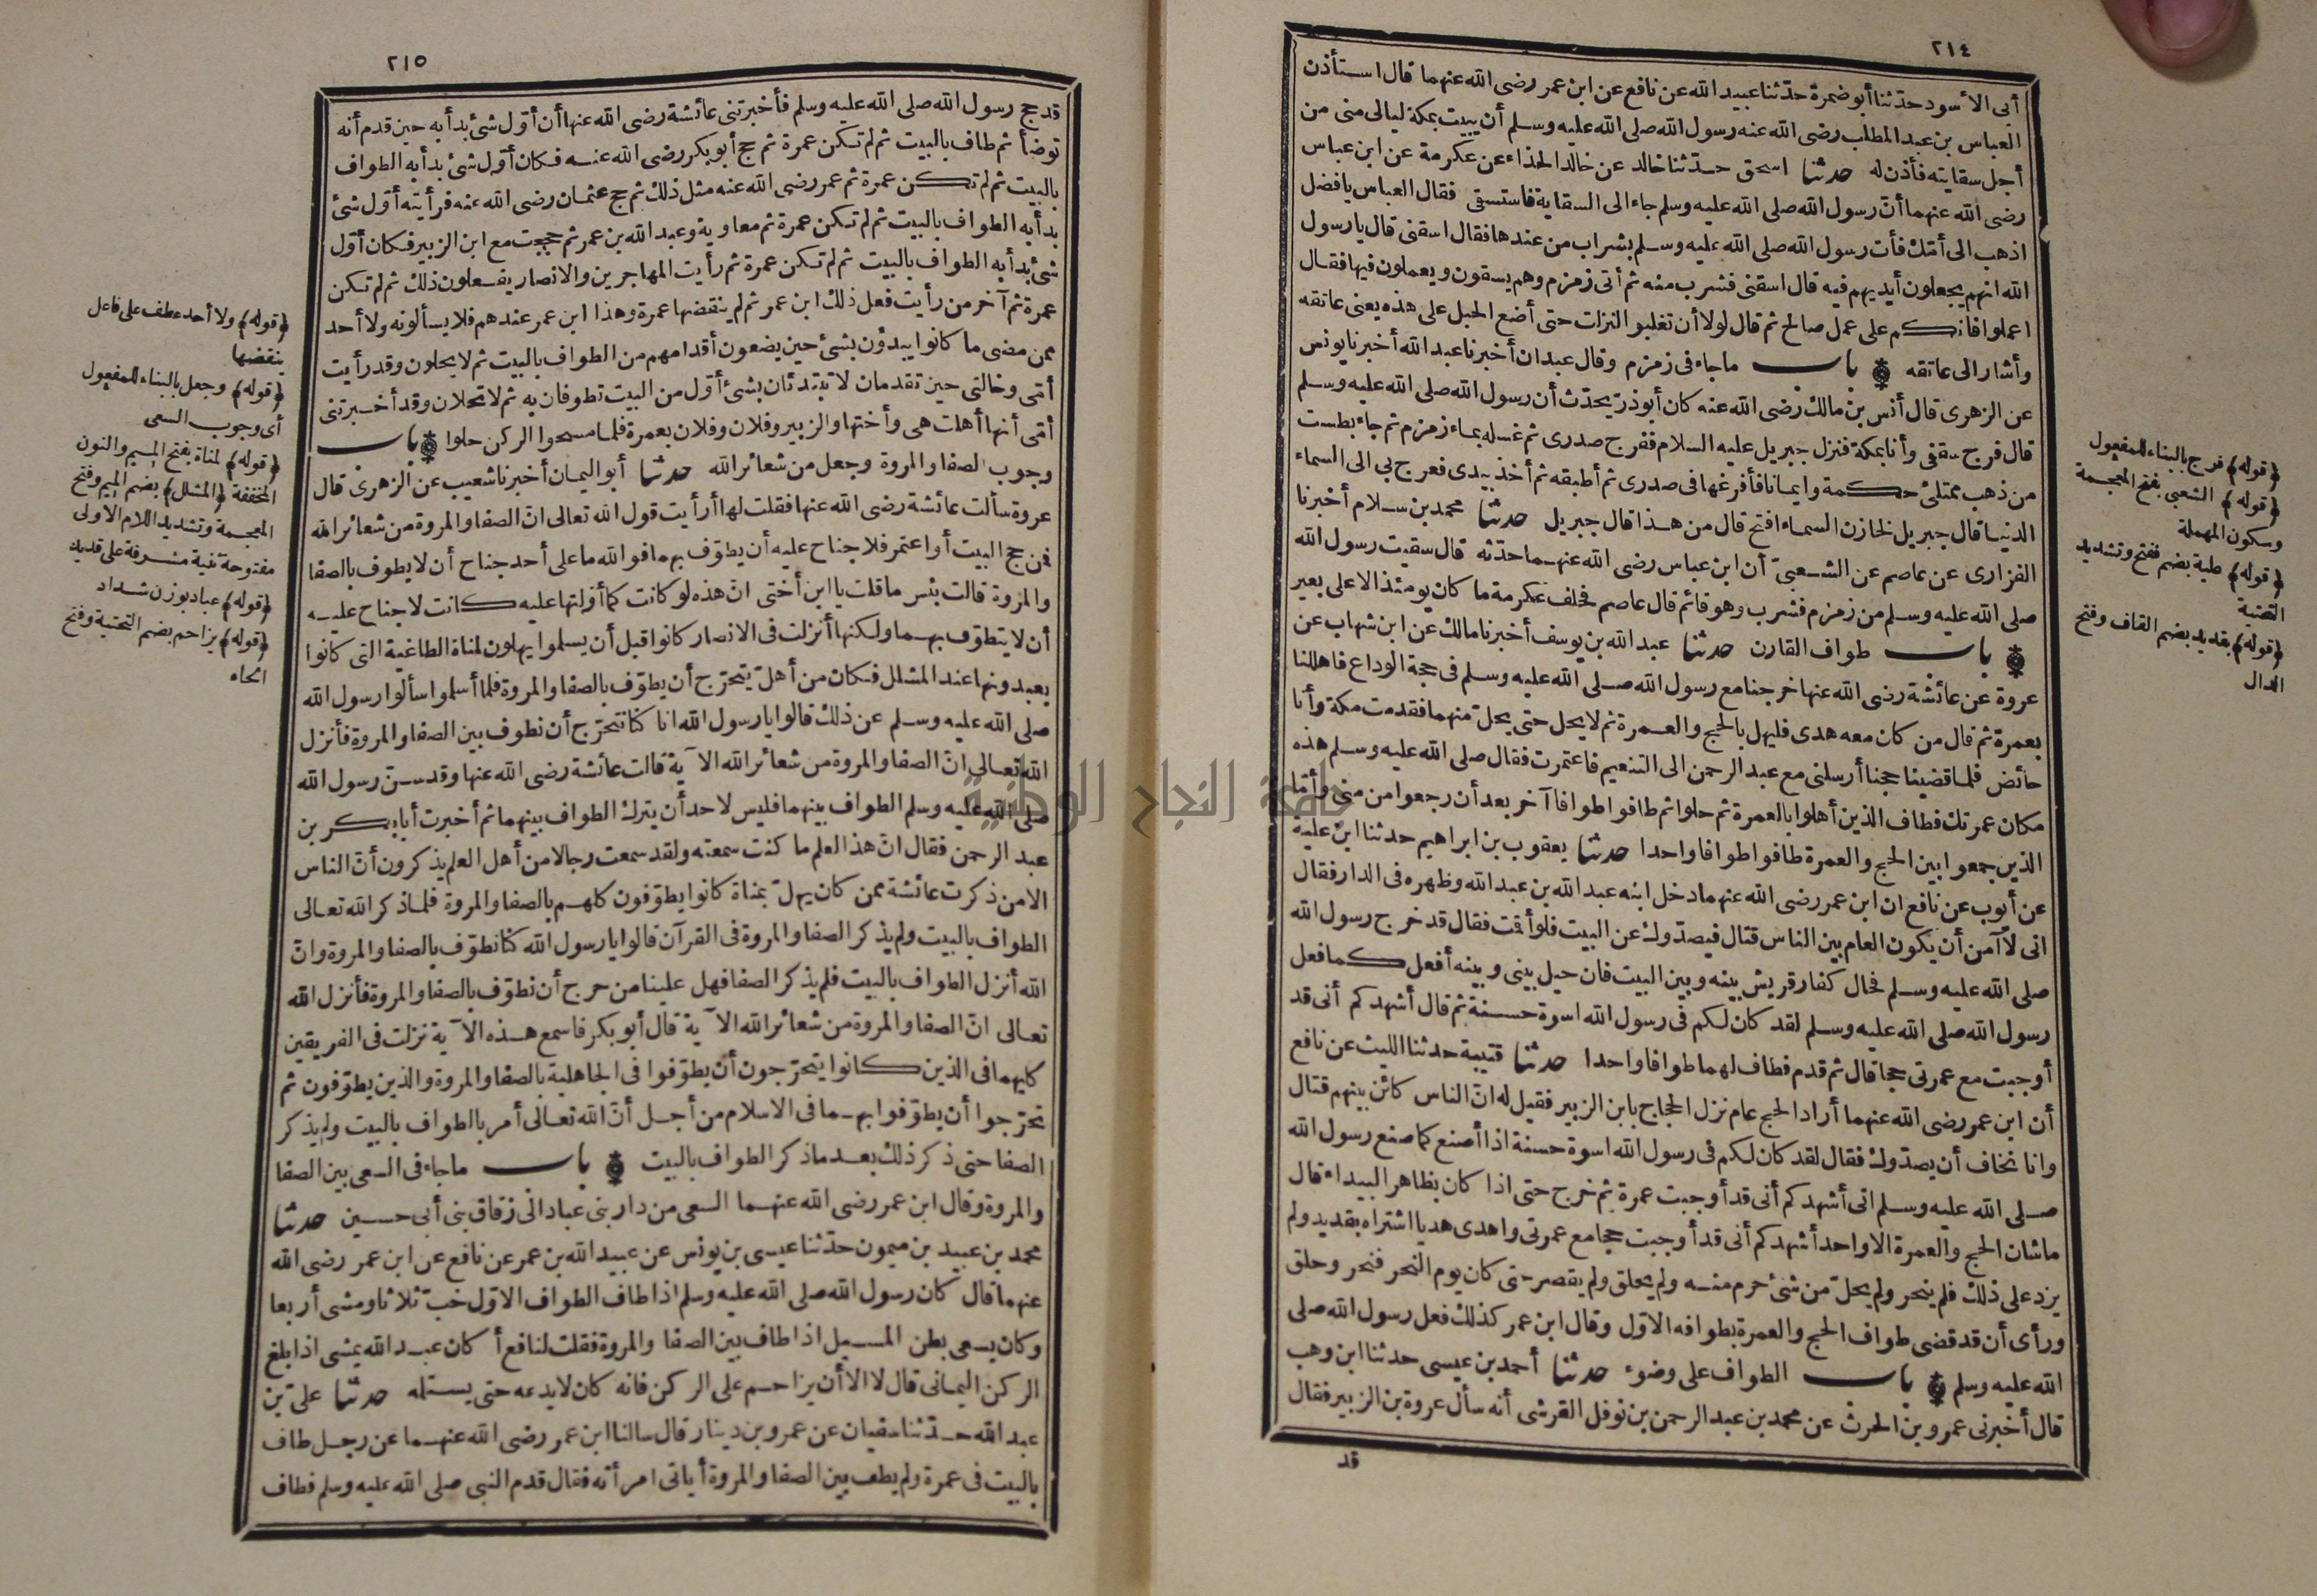 ٢١٤
أبى الاسود حدثنا أبو ضمرة حدثنا عبيد الله عن نافع عن ابن عمر رضى الله عنهما قال استأذن
العباس بن عبد المطلب رضى الله عنه رسول الله صلى الله عليه وسلم أن يبيت بمكة ليالى منى من
أجل سقايته فأذن له حدثنا اسحق حدثنا خالد عن خالد الحذاء عن عكرمة عن ابن عباس
رضى الله عنهما أن رسول الله صلى الله عليه وسلم جاء الى السقاية فاستسقى فقال العباس يافضل
اذهب الى أمك فأت رسول الله صلى الله عليه وسلم بشراب من عندها فقال اسقنى قال يارسول
الله انهم يجعلون أيديهم فيه قال اسقنى فشرب منه ثم أتى زمزم وهم يسقون ويعملون فيها فقال
اعملوا فانكم على عمل صالح ثم قال لولا أن تغلبوا لنزلت حتى أضع الحبل على هذه يعنى عاتقه
وأشار الى عاتقه باب ماجاء فى زمزم وقال عبدان أخبرنا عبد الله أخبرنا يونس
عن الزهرى قال أنس بن مالك رضى الله عنه كان أبو ذر يحدث أن رسول الله صلى الله عليه وسلم
قال فرج سقفى وأنا بمكة فنزل جبريل عليه السلام ففرج صدرى ثم غسله بماء زمزم ثم جاء بطست
من ذهب ممتلئ حكمة وايمانا فأفرغها فى صدرى ثم أطبقه ثم أخذ بيدى فعرج بى الى السماء
الدنيا قال جبريل لخازن السماء افتح قال من هذا قال جبريل حدثنا محمد بن سلام أخبرنا
الفزارى عن عاصم عن الشعبى أن ابن عباس رضى الله عنهما حدثه قال سقيت رسول الله
صلى الله عليه وسلم من زمزم فشرب وهو قائم قال عاصم فحلف عكرمة ما كان يومئذ الا على بعير
باب طواف القارن حدثنا عبد الله بن يوسف أخبرنا مالك عن ابن شهاب عن
عروة عن عائشة رضى الله عنها خرجنا مع رسول الله صلى الله عليه وسلم فى حجة الوداع فاهللنا
بعمرة ثم قال من كان معه هدى فليهل بالحج والعمرة ثم لا يحل حتى يحل منهما فقدمت مكة وأنا
حائض فلما قضينا حجنا أرسلنى مع عبد الرحمن الى التنعيم فاعتمرت فقال صلى الله عليه وسلم هذه
مكان عمرتك فطاف الذين أهلوا بالعمرة ثم حلوا ثم طافوا طوافا آخر بعد أن رجعوا من منى وأما
الذين جمعوا بين الحج والعمرة طافوا طوافا واحدا حدثنا يعقوب بن ابراهيم حدثنا ابن علية
عن أيوب عن نافع ان ابن عمر رضى الله عنهما دخل ابنه عبد الله بن عبد الله وظهره فى الدار فقال
انى لا آمن أن يكون العام بين الناس قتال فيصدوك عن البيت فلو أقمت فقال قد خرج رسول الله
صلى الله عليه وسلم فحال كفار قريش بينه وبين البيت فان حيل بينى وبينه أفعل كما فعل
رسول الله صلى الله عليه وسلم لقد كان لكم فى رسول الله اسوة حسنة ثم قال أشهدكم أنى قد
أوجبت مع عمرتى حجا قال ثم قدم فطاف لهما طوافا واحدا حدثنا قتيبة حدثنا الليث عن نافع
أن ابن عمر رضى الله عنهما أراد الحج عام نزل الحجاج بابن الزبير فقيل له ان الناس كائن بينهم قتال
وانا نخاف أن يصدوك فقال لقد كان لكم فى رسول الله اسوة حسنة اذا أصنع كما صنع رسول الله
صلى الله عليه وسلم انى أشهدكم أنى قد أوجبت عمرة ثم خرج حتى اذا كان بظاهر البيداء قال
ماشان الحج والعمرة الا واحد أشهدكم أنى قد أوجبت حجا مع عمرتى واهدى هديا اشتراه بقديد ولم
يزد على ذلك فلم ينحر ولم يحل من شئ حرم منه ولم يحلق ولم يقصر حتى كان يوم النحر فنحر وحلق
ورأى أن قد قضى طواف الحج والعمرة بطوافه الاول وقال ابن عمر كذلك فعل رسول الله صلى
الله عليه وسلم باب الطواف على وضوء حدثنا أحمد بن عيسى حدثنا ابن وهب
قال أخبرنى عمرو بن الحرث عن محمد بن عبد الرحمن بن نوفل القرشى أنه سأل عروة بن الزبير فقال
قد
(قوله) فرج بالبناء للمفعول
(قوله) الشعبى بفتح المعجمة
وسكون المهملة
(قوله) علية بضم ففتح وتشديد
التحتية
(قوله) بقديد بضم القاف وفتح
الدال
٢١٥
قد حج رسول الله صلى الله عليه وسلم فأخبرتنى عائشة رضى الله عنها أن أول شئ بدأ به حين قدم أنه
توضأ ثم طاف بالبيت ثم لم تكن عمرة ثم حج أبو بكر رضى الله عنه فكان أول شئ بدأ به الطواف
بالبيت ثم لم تكن عمرة ثم عمر رضى الله عنه مثل ذلك ثم حج عثمان رضى الله عنه فرأيته أول شئ
بدأ به الطواف بالبيت ثم لم تكن عمرة ثم معاوية وعبد الله بن عمر ثم حججت مع ابن الزبير فكان أول
شئ بدأ به الطواف بالبيت ثم لم تكن عمرة ثم رأيت المهاجرين والانصار يفعلون ذلك ثم لم تكن
عمرة ثم آخر من رأيت فعل ذلك ابن عمر ثم لم ينقضها عمرة وهذا ابن عمر عندهم فلا يسألونه ولا أحد
ممن مضى ما كانوا يبدؤن بشئ حين يضعون أقدامهم من الطواف بالبيت ثم لا يحلون وقد رأيت
أمى وخالتى حين تقدمان لا تبتدئان بشئ أول من البيت تطوفان به ثم لا تحلان وقد أخبرتنى
أمى أنها أهلت هى وأختها والزبير وفلان وفلان بعمرة فلما مسحوا الركن حلوا باب
وجوب الصفا والمروة وجعل من شعائر الله حدثنا أبو اليمان أخبرنا شعيب عن الزهرى قال
عروة سألت عائشة رضى الله عنها فقلت لها أرأيت قول الله تعالى ان الصفا والمروة من شعائر الله
فمن حج البيت أو اعتمر فلا جناح عليه أن يطوف بهما فوالله ما على أحد جناح أن لا يطوف بالصفا
والمروة قالت بئس ما قلت يا ابن أختى ان هذه لو كانت كما أولتها عليه كانت لا جناح عليه
أن لا يتطوف بهما ولكنها أنزلت فى الانصار كانوا قبل أن يسلموا يهلون لمناة الطاغية التى كانوا
يعبدونها عند المشلل فكان من أهل يتحرج أن يطوف بالصفا والمروة فلما أسلموا سألوا رسول الله
صلى الله عليه وسلم عن ذلك قالوا يارسول الله انا كنا نتحرج أن نطوف بين الصفا والمروة فأنزل
الله تعالى ان الصفا والمروة من شعائر الله الآية قالت عائشة رضى الله عنها وقد سن رسول الله
صلى الله عليه وسلم الطواف بينهما فليس لاحد أن يترك الطواف بينهما ثم أخبرت أبا بكر بن
عبد الرحمن فقال ان هذا العلم ما كنت سمعته ولقد سمعت رجالا من أهل العلم يذكرون أن الناس
الا من ذكرت عائشة ممن كان يهل بمناة كانوا يطوفون كلهم بالصفا والمروة فلما ذكر الله تعالى
الطواف بالبيت ولم يذكر الصفا والمروة فى القرآن قالوا يارسول الله كنا نطوف بالصفا والمروة وان
الله أنزل الطواف بالبيت فلم يذكر الصفا فهل علينا من حرج أن نطوف بالصفا والمروة فأنزل الله
تعالى ان الصفا والمروة من شعائر الله الآية قال أبو بكر فاسمع هذه الآية نزلت فى الفريقين
كليهما فى الذين كانوا يتحرجون أن يطوفوا فى الجاهلية بالصفا والمروة والذين يطوفون ثم
تحرجوا أن يطوفوا بهما فى الاسلام من أجل أن الله تعالى أمر بالطواف بالبيت ولم يذكر
الصفا حتى ذكر ذلك بعد ما ذكر الطواف بالبيت باب ماجاء فى السعى بين الصفا
والمروة وقال ابن عمر رضى الله عنهما السعى من دار بنى عباد الى زقاق بنى أبى حسين حدثنا
محمد بن عبيد بن ميمون حدثنا عيسى بن يونس عن عبيد الله بن عمر عن نافع عن ابن عمر رضى الله
عنهما قال كان رسول الله صلى الله عليه وسلم اذا طاف الطواف الاول خب ثلاثا ومشى أربعا
وكان يسعى بطن المسيل اذا طاف بين الصفا والمروة فقلت لنافع أكان عبد الله يمشى اذا بلغ
الركن اليمانى قال لا الا أن يزاحم على الركن فانه كان لا يدعه حتى يستلمه حدثنا على بن
عبد الله حدثنا سفيان عن عمرو بن دينار قال سالنا ابن عمر رضى الله عنهما عن رجل طاف
بالبيت فى عمرة ولم يطف بين الصفا والمروة أياتى امرأته فقال قدم النبى صلى الله عليه وسلم فطاف
(قوله) ولا أحد عطف على فاعل
ينقضها
(قوله) وجعل بالبناء للمفعول
أى وجوب السعى
(قوله) لمناة بفتح الميم والنون
المخففة (المشلل) بضم الميم وفتح
المعجمة وتشديد اللام الاولى
مفتوحة ثنية مشرفة على قديد
(قوله) عباد بوزن شداد
(قوله) يزاحم بضم التحتية وفتح
الحاء
جامعة النجاح الوطنية